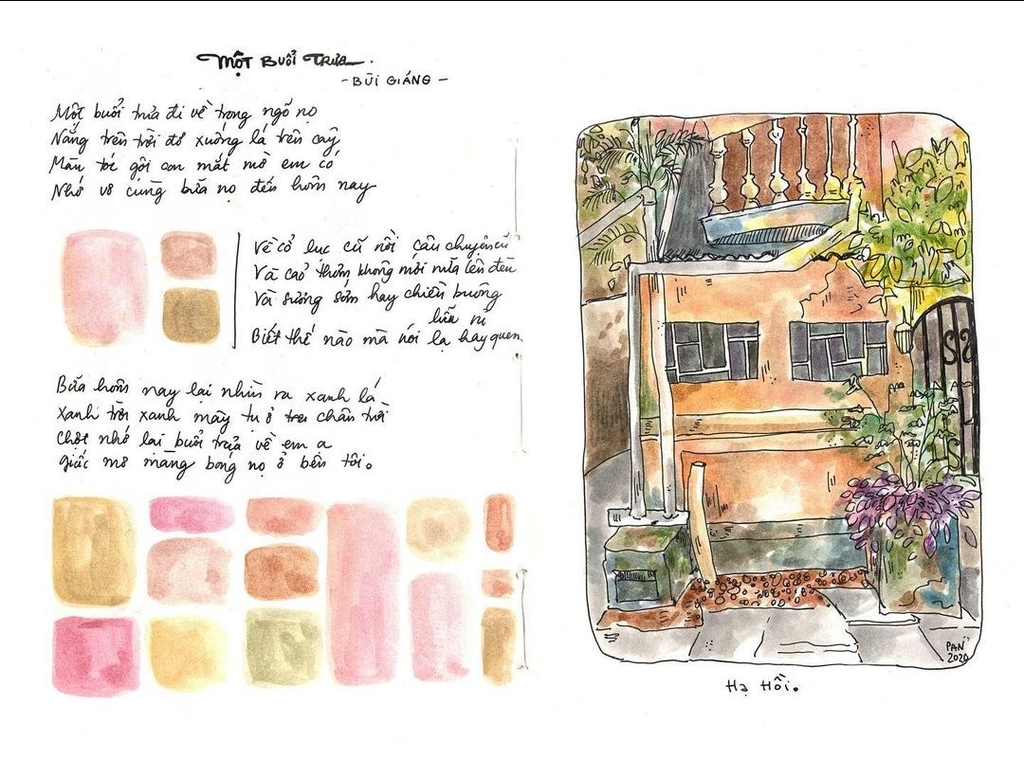 Một Buổi Trưa.
- BÙI GIÁNG -
Một buổi trưa đi về trong ngõ nọ
Nắng trên trời đổ xuống lá trên cây
Màu tóc gội con mắt mờ em có
Nhớ vô cùng bữa nọ đến hôm nay
Về cổ lục cũ rồi câu chuyện cũ
Và cao thơm không mới nữa lên đèn
Với sương sớm hay chiều buông
liễu rủ
Biết thế nào mà nói lạ hay quen
Bữa hôm nay lại nhìn ra xanh lá
Xanh trời xanh mây tụ ở chân trời
Chợt nhớ lại buổi trưa về em ạ
Giấc mơ màng bóng nọ ở bên tôi.
PAN
2020
Hạ Hồi.